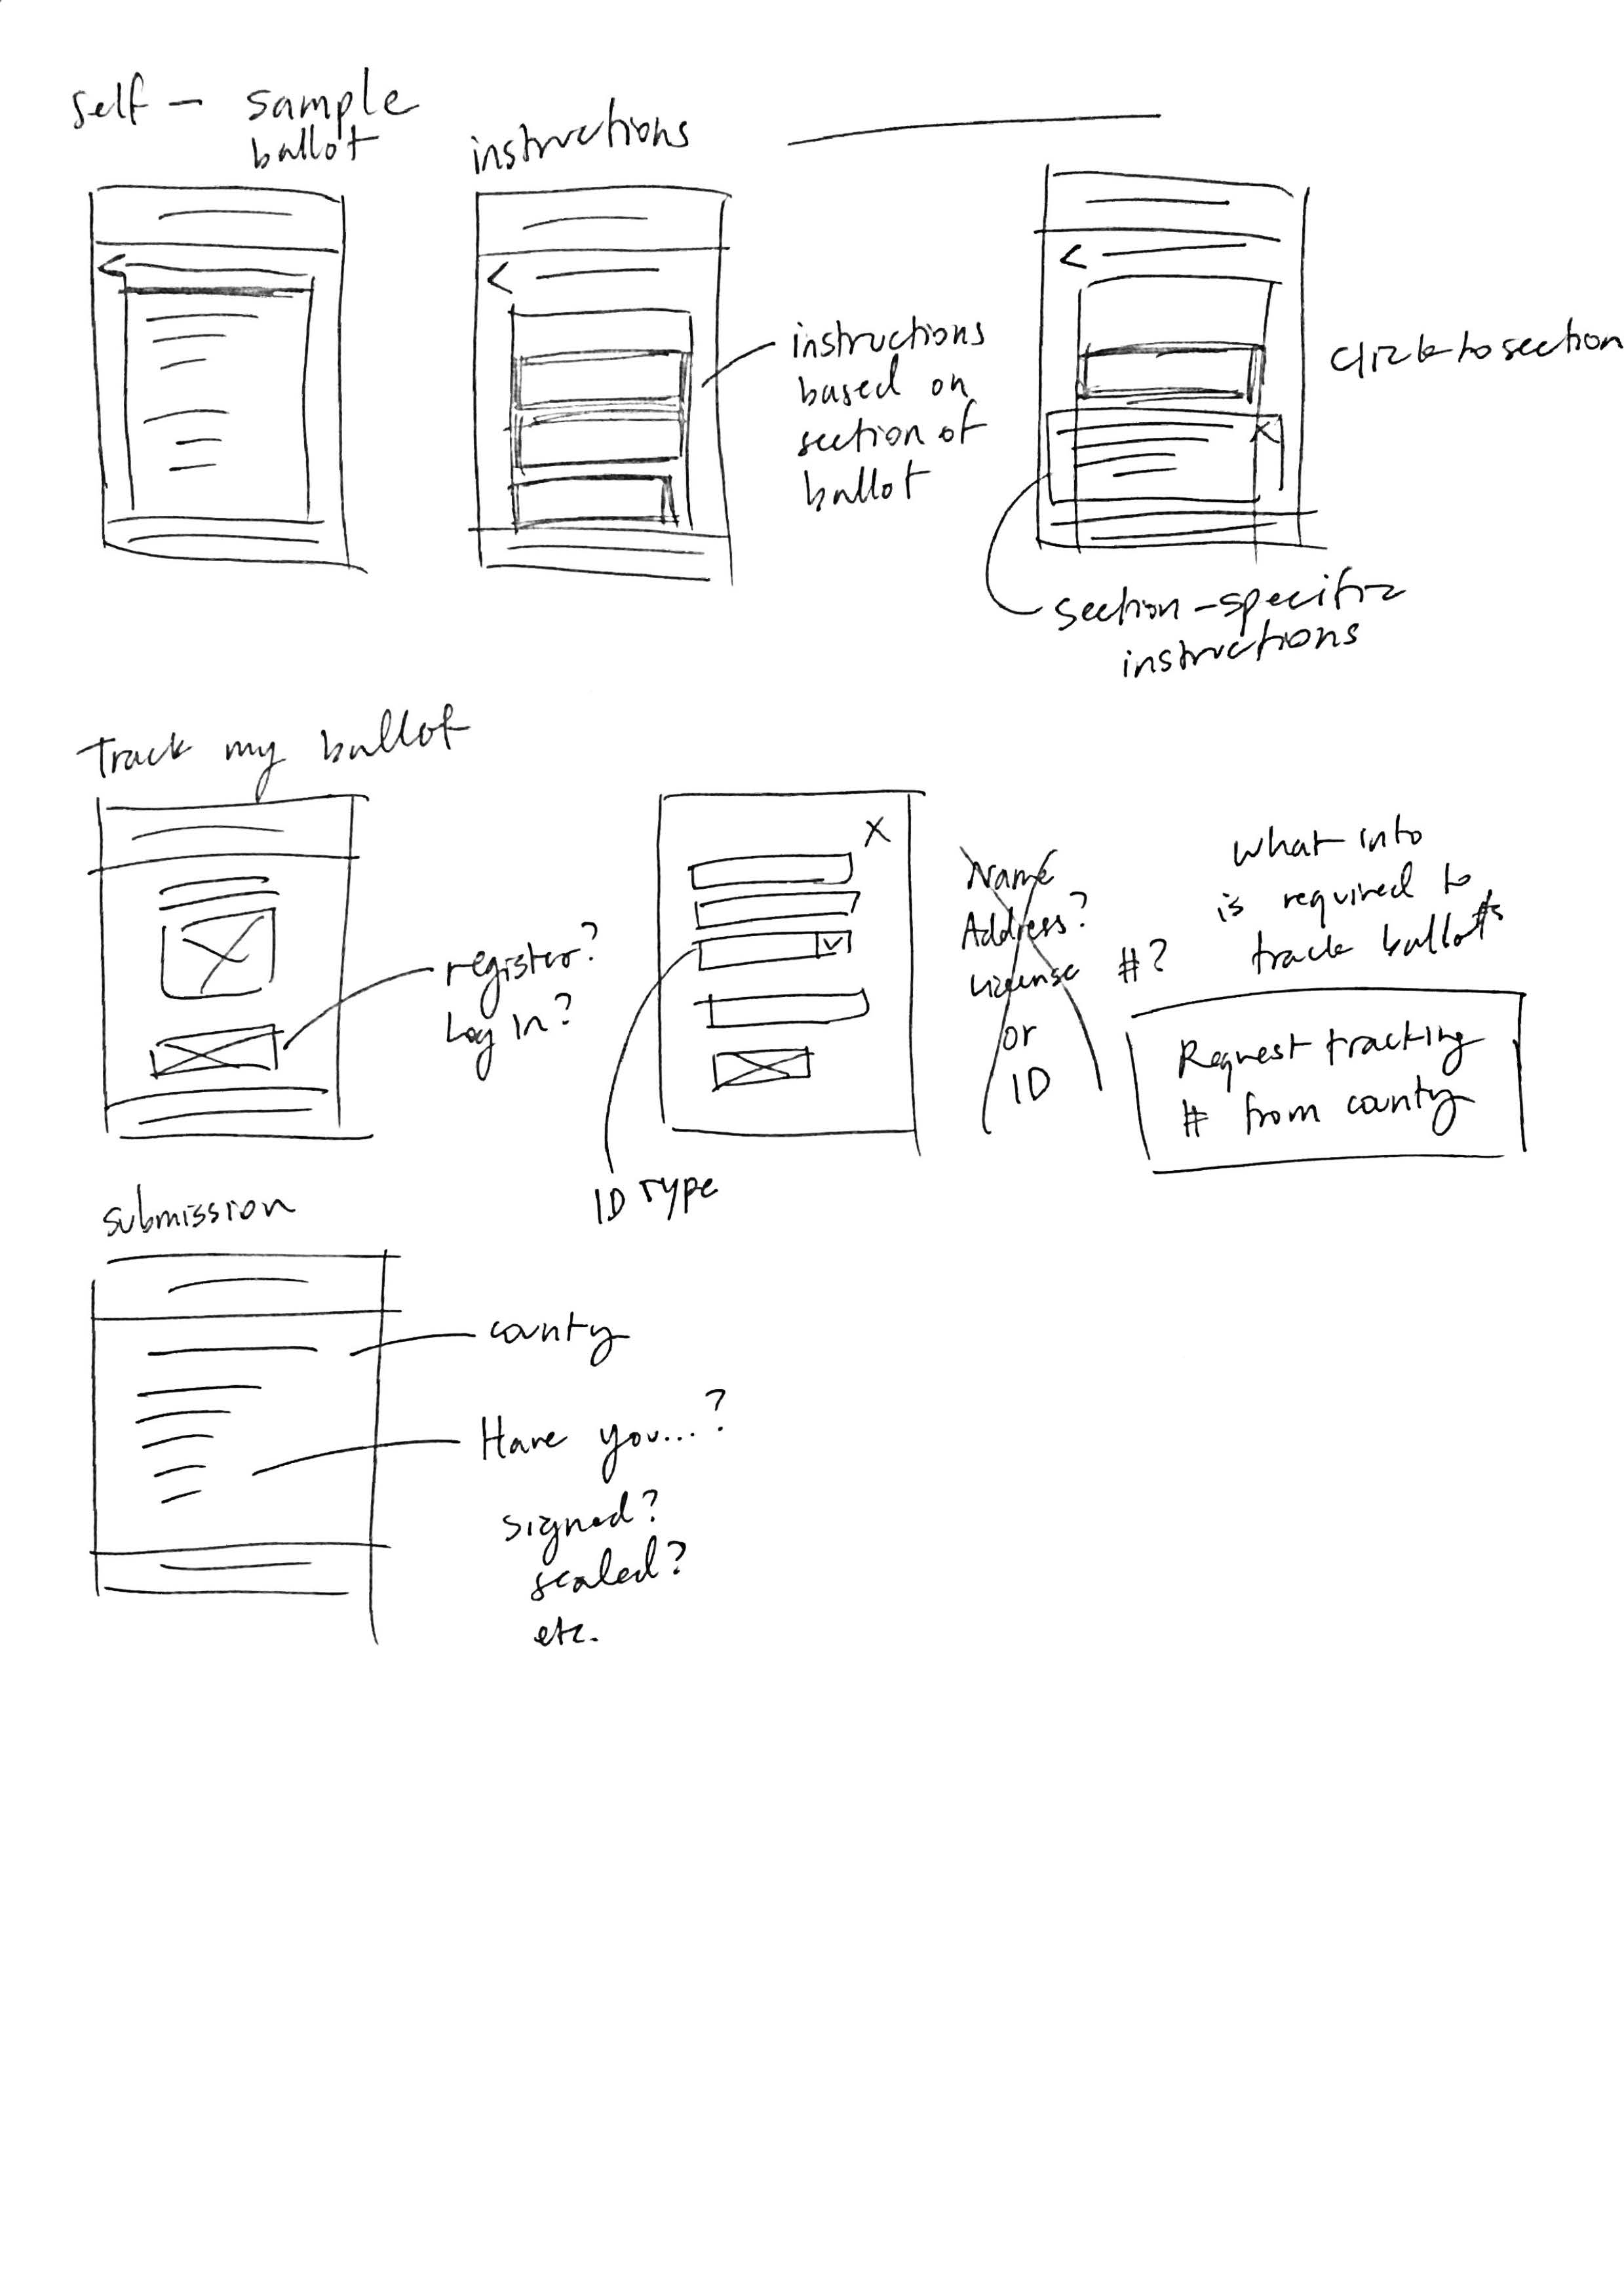 self - sample
ballot
instructions
instructions
based on
section of
ballot
click to section
section-specific
instructions
Track my ballot
register?
Log in?
ID Type
Name
Address?
License #?
or
ID
what info
is required to
track ballots
Request tracking
# from county
submission
county
Have you...?
signed?
sealed?
etc.